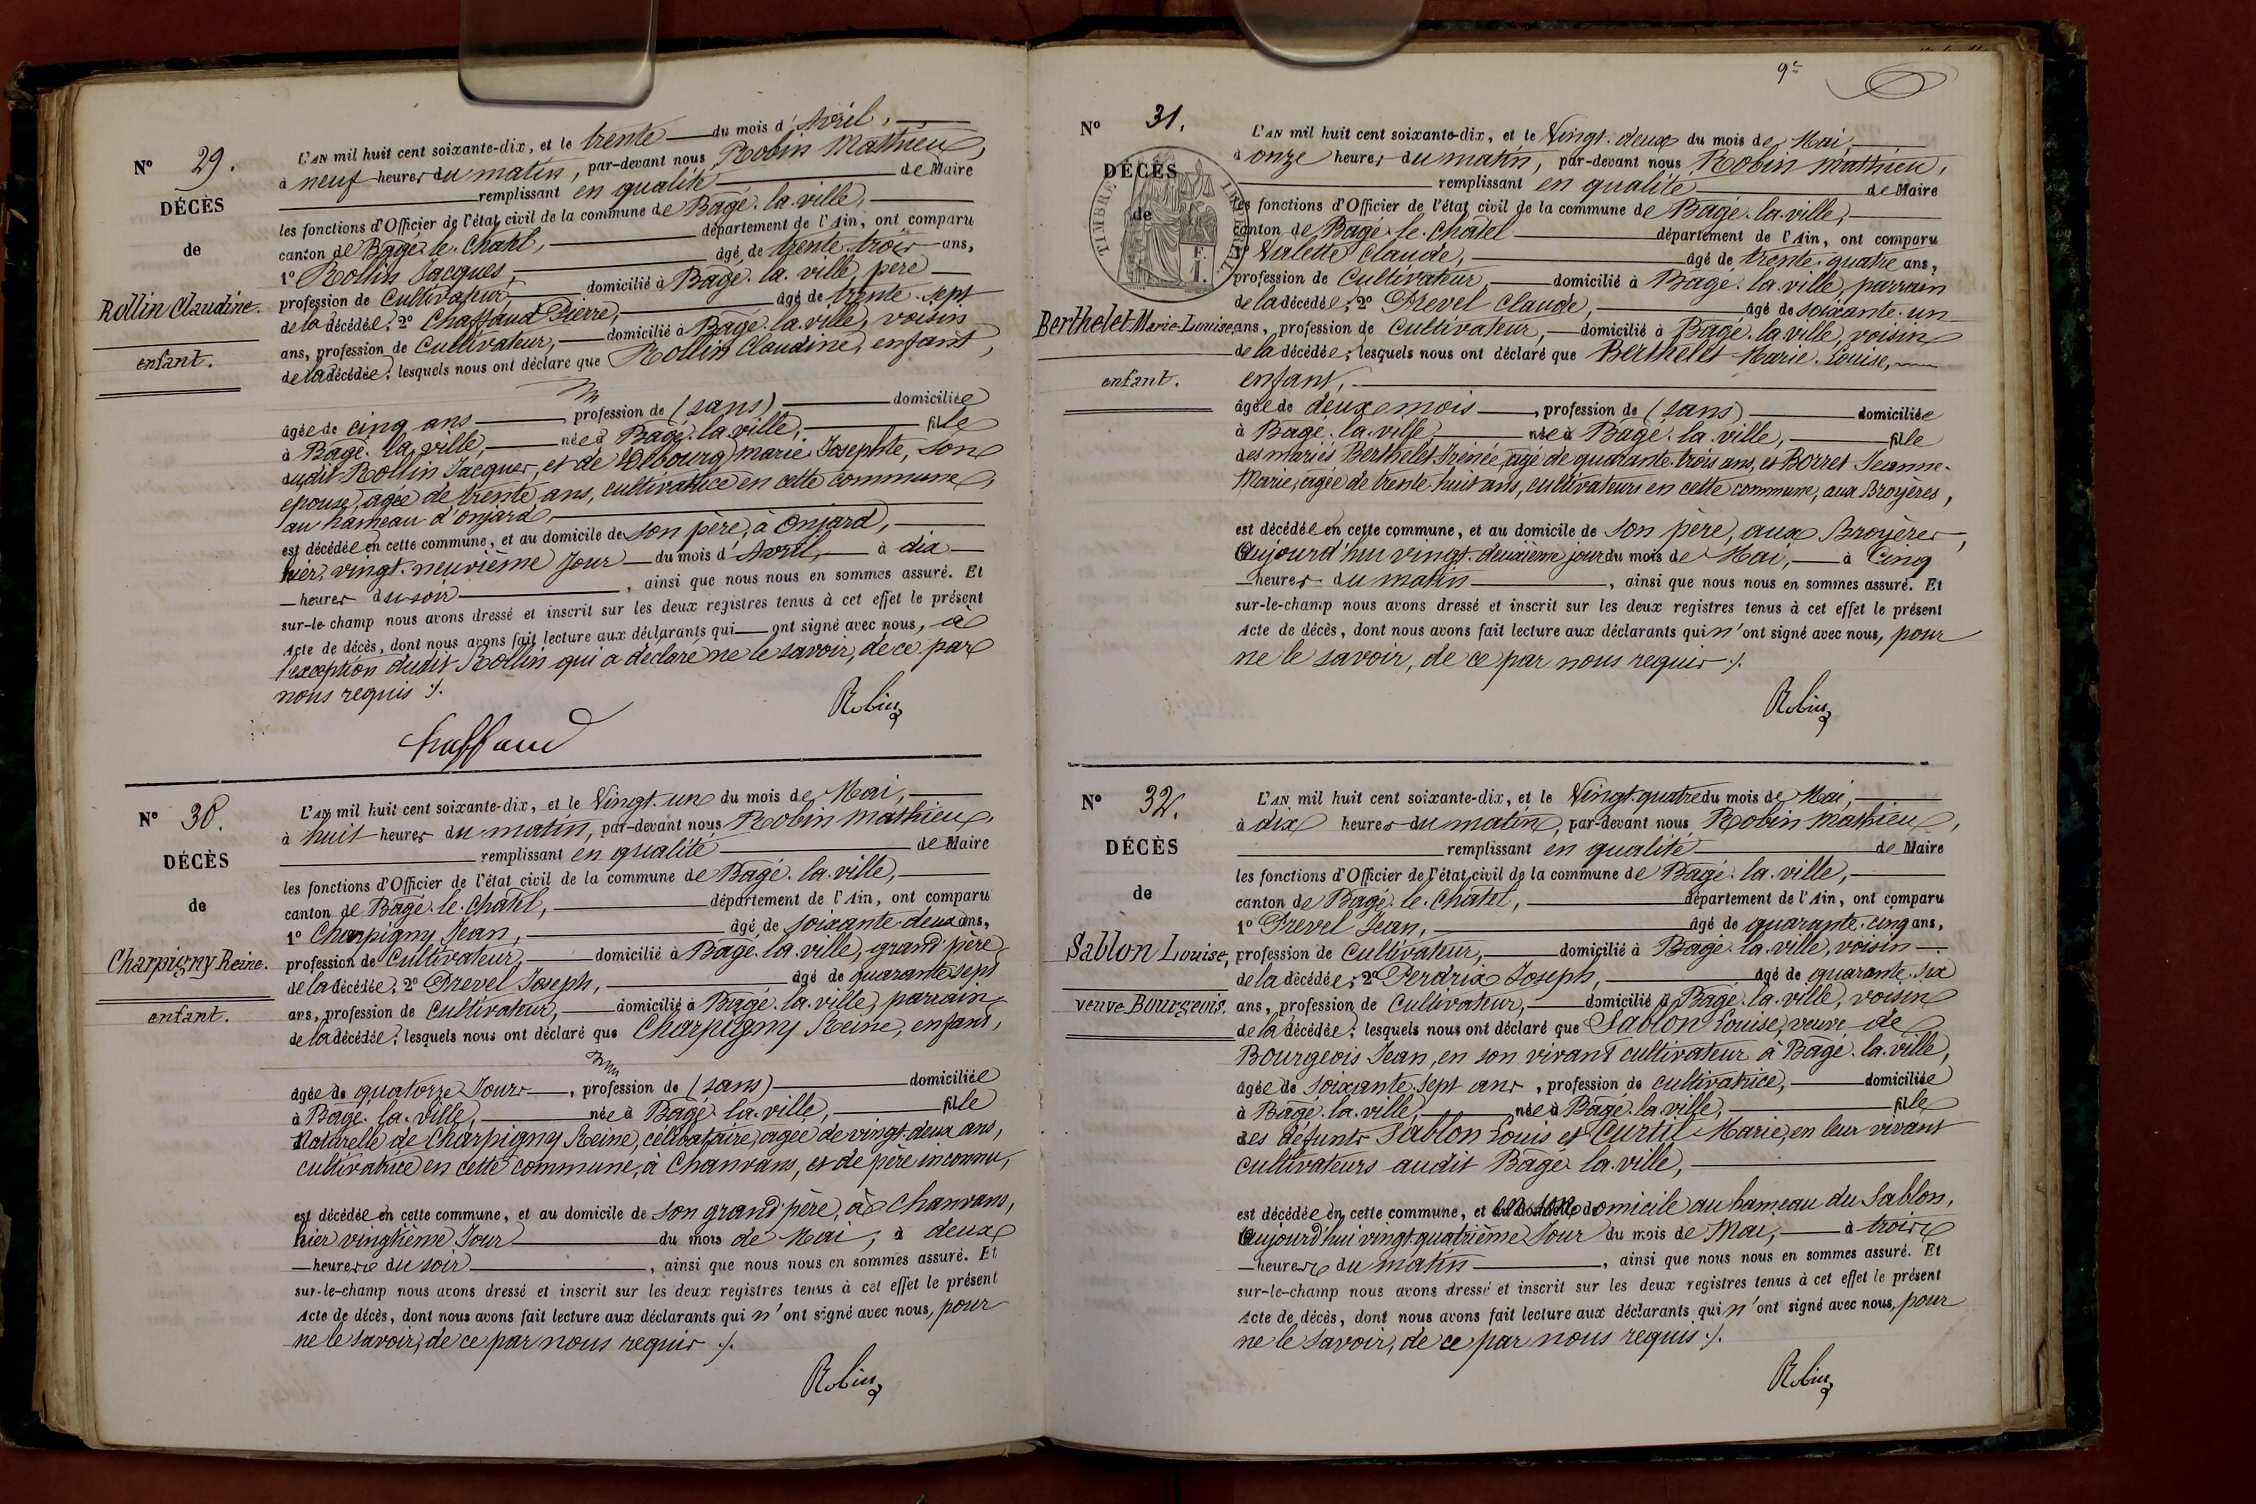 N° 29.
DÉCÈS
de
Rollin Claudine.
enfant.
L'AN mil huit cent soixante-dix, et le trente du mois d'Avril,
à neuf heures du matin, par-devant nous Robin Mathieu,
remplissant en qualité de Maire
les fonctions d'Officier de l'état civil de la commune de Bâgé-la-ville,
canton de Bâgé-le-Châtel, département de l'Ain, ont comparu
1° Rollin Jacques, âgé de trente-trois ans,
profession de Cultivateur, domicilié à Bâgé-la-ville, père
de la décédée, 2° Chaffaud Pierre, âgé de trente-sept
ans, profession de Cultivateur, domicilié à Bâgé-la-ville, voisin
de la décédée; lesquels nous ont déclaré que Rollin Claudine, enfant,
âgée de cinq ans, profession de (sans) domiciliée
à Bâgé-la-ville, née à Bâgé-la-ville, fille
dudit Rollin Jacques, et de Debourg marie Josephte, son
épouse, âgée de trente ans, cultivatrice en cette commune,
au hameau d'Onjard,
est décédée en cette commune, et au domicile de son père, à Onjard,
hier, vingt-neuvième Jour du mois d'Avril, à dix
heures du soir, ainsi que nous nous en sommes assuré. Et
sur-le-champ nous avons dressé et inscrit sur les deux registres tenus à cet effet le présent
Acte de décès, dont nous avons fait lecture aux déclarants qui ont signé avec nous, à
l'exception dudit Rollin qui a déclaré ne le savoir, de ce par
nous requis ./.
Robin
Chaffaud
N° 30.
DÉCÈS
de
Charpigny Reine.
enfant.
L'AN mil huit cent soixante-dix, et le Vingt-un du mois de Mai,
à huit heures du matin, par-devant nous Robin Mathieu,
remplissant en qualité de Maire
les fonctions d'Officier de l'état civil de la commune de Bâgé-la-ville,
canton de Bâgé-le-Châtel, département de l'Ain, ont comparu
1° Charpigny Jean, âgé de soixante-deux ans,
profession de Cultivateur, domicilié à Bâgé-la-ville, grand-père
de la décédée, 2° Prevel Joseph, âgé de quarante-sept
ans, profession de Cultivateur, domicilié à Bâgé-la-ville, parrain
de la décédée; lesquels nous ont déclaré que Charpigny Reine, enfant,
âgée de quatorze Jours, profession de (sans) domiciliée
à Bâgé-la-ville, née à Bâgé-la-ville, fille
Naturelle de Charpigny Reine, célibataire, âgée de vingt-deux ans,
cultivatrice en cette commune, à Chanvans, et de père inconnu,
est décédée en cette commune, et au domicile de son grand père, à Chanvans,
hier vingtième Jour du mois de Mai, à deux
heures du soir, ainsi que nous nous en sommes assuré. Et
sur-le-champ nous avons dressé et inscrit sur les deux registres tenus à cet effet le présent
Acte de décès, dont nous avons fait lecture aux déclarants qui n'ont signé avec nous, pour
ne le savoir, de ce par nous requis ./.
Robin
9e
N° 31.
DÉCÈS
de
TIMBRE IMPÉRIAL
1 F.
Berthelet Marie-Louise
enfant.
L'AN mil huit cent soixante-dix, et le Vingt-deux du mois de Mai,
à onze heures du matin, par-devant nous Robin Mathieu,
remplissant en qualité de Maire
les fonctions d'Officier de l'état civil de la commune de Bâgé-la-ville,
canton de Bâgé-le-Châtel département de l'Ain, ont comparu
1° Virlette Claude, âgé de trente-quatre ans,
profession de Cultivateur, domicilié à Bâgé-la-ville, parrain
de la décédée, 2° Prevel Claude, âgé de soixante-un
ans, profession de Cultivateur, domicilié à Bâgé-la-ville, voisin
de la décédée; lesquels nous ont déclaré que Berthelet Marie-Louise,
enfant,
âgée de deux mois, profession de (sans) domiciliée
à Bâgé-la-ville née à Bâgé-la-ville, fille
des mariés Berthelet Irénée, âgé de quarante-trois ans, et Borret Jeanne-
Marie, âgée de trente-huit ans, cultivateurs en cette commune, aux Broyères,
est décédée en cette commune, et au domicile de son père, aux Broyères,
Aujourd'hui vingt-deuxième jour du mois de Mai, à Cinq
heures du matin, ainsi que nous nous en sommes assuré. Et
sur-le-champ nous avons dressé et inscrit sur les deux registres tenus à cet effet le présent
Acte de décès, dont nous avons fait lecture aux déclarants qui n'ont signé avec nous, pour
ne le savoir, de ce par nous requis ./.
Robin
N° 32.
DÉCÈS
de
Sablon Louise,
veuve Bourgeois.
L'AN mil huit cent soixante-dix, et le Vingt-quatre du mois de Mai,
à dix heures du matin, par-devant nous Robin Mathieu,
remplissant en qualité de Maire
les fonctions d'Officier de l'état civil de la commune de Bâgé-la-ville,
canton de Bâgé-le-Châtel, département de l'Ain, ont comparu
1° Prevel Jean, âgé de quarante-cinq ans,
profession de Cultivateur, domicilié à Bâgé-la-ville, voisin
de la décédée, 2° Perdrix Joseph, âgé de quarante-six
ans, profession de Cultivateur, domicilié à Bâgé-la-ville, voisin
de la décédée; lesquels nous ont déclaré que Sablon Louise, veuve de
Bourgeois Jean, en son vivant cultivateur à Bâgé-la-ville,
âgée de soixante-sept ans, profession de cultivatrice, domiciliée
à Bâgé-la-ville, née à Bâgé-la-ville, fille
des défunts Sablon Louis et Curtil Marie, en leur vivant
cultivateurs audit Bâgé-la-ville,
est décédée en cette commune, et en son domicile au hameau du Sablon,
Aujourd'hui vingt-quatrième Jour du mois de Mai, à trois
heures du matin, ainsi que nous nous en sommes assuré. Et
sur-le-champ nous avons dressé et inscrit sur les deux registres tenus à cet effet le présent
Acte de décès, dont nous avons fait lecture aux déclarants qui n'ont signé avec nous, pour
ne le savoir, de ce par nous requis ./.
Robin